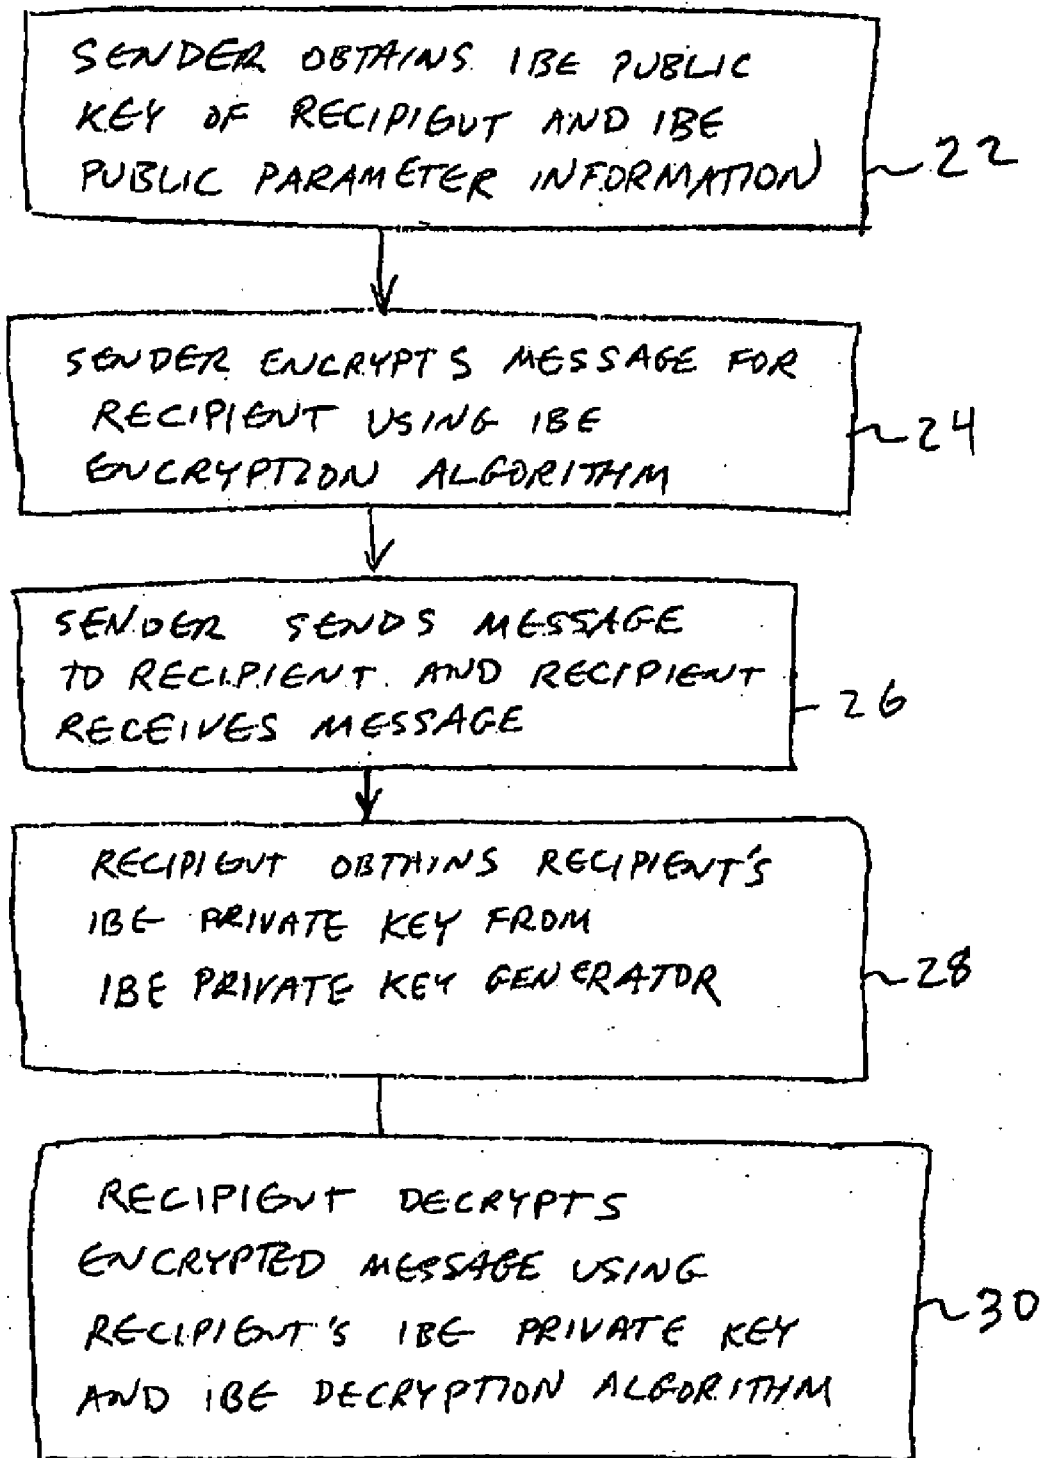 SENDER OBTAINS IBE PUBLIC
KEY OF RECIPIENT AND IBE
PUBLIC PARAMETER INFORMATION
22
SENDER ENCRYPTS MESSAGE FOR
RECIPIENT USING IBE
ENCRYPTION ALGORITHM
24
SENDER SENDS MESSAGE
TO RECIPIENT AND RECIPIENT
RECEIVES MESSAGE
26
RECIPIENT OBTAINS RECIPIENT'S
IBE PRIVATE KEY FROM
IBE PRIVATE KEY GENERATOR
28
RECIPIENT DECRYPTS
ENCRYPTED MESSAGE USING
RECIPIENT'S IBE PRIVATE KEY
AND IBE DECRYPTION ALGORITHM
30